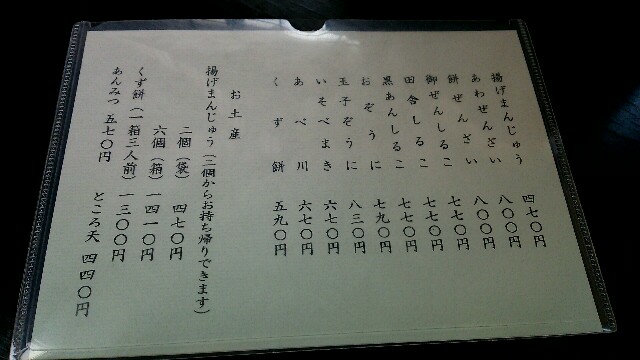 揚げまんじゅう 四七〇円
あわぜんざい 八〇〇円
餅ぜんざい 八〇〇円
御ぜんしるこ 七七〇円
田舎しるこ 七七〇円
黒あんしるこ 七七〇円
おぞうに 七九〇円
玉子ぞうに 八三〇円
いそべまき 六七〇円
あべ川 六七〇円
くず餅 五九〇円
お土産
揚げまんじゅう（二個からお持ち帰りできます）
二個（袋） 四七〇円
六個（箱） 一四一〇円
くず餅（一箱三人前） 一三〇〇円
あんみつ 五七〇円 ところ天 四四〇円